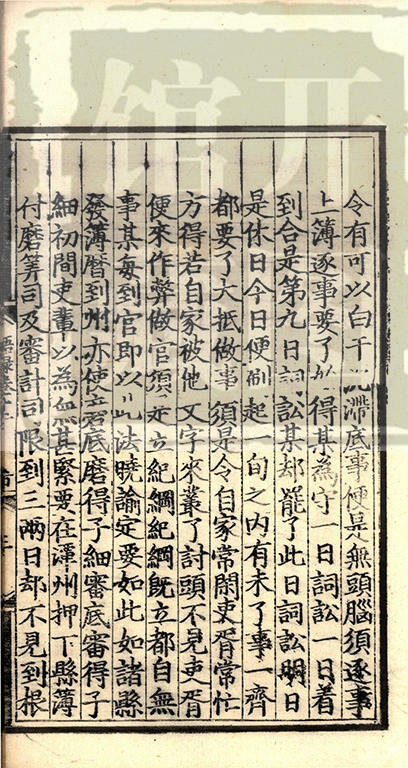 令有可以白干沉滯底事便是無頭腦須逐事
上簿逐事要了始得某為守一日詞訟一日着
到合是第九日詞訟某却罷了此日詞訟明日
是休日今日便刷起一旬之內有未了事一齊
都要了大抵做事須是令自家常閑吏胥常忙
方得若自家被他文字來叢了討頭不見吏胥
便來作弊做官須是立紀綱紀綱既立都自無
事某每到官即以此法曉諭定要如此如諸縣
發簿曆到州亦使底磨得子細審底審得子
細初間吏輩以為無甚緊要在漳州押下縣簿
付磨筭司及審計司限到三兩日却不見到根